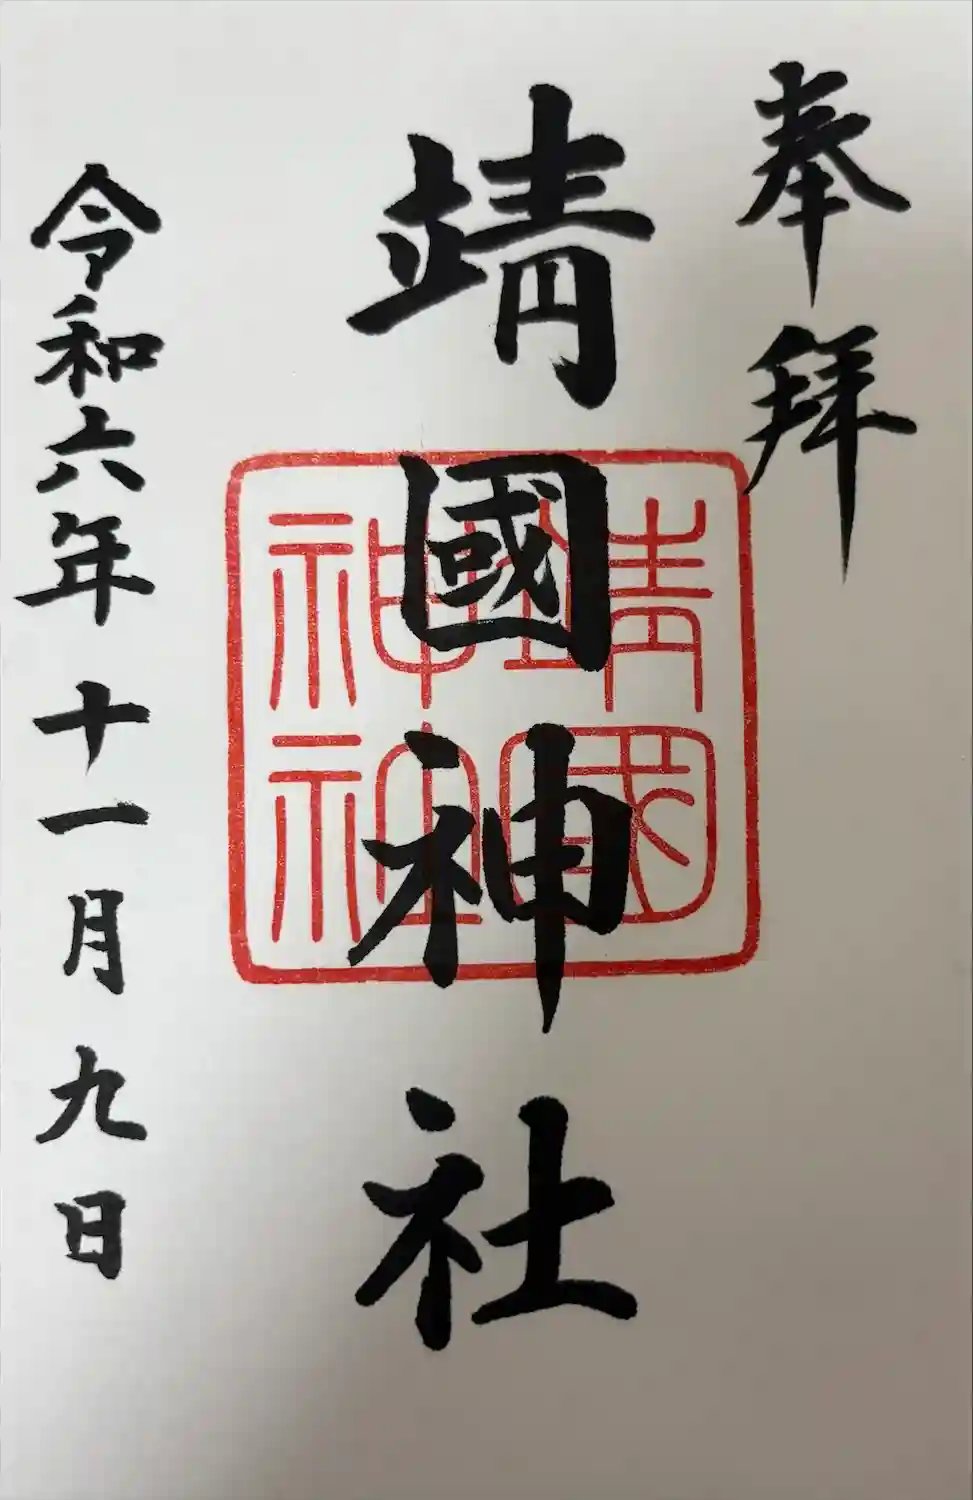 奉拝
靖國神社
靖國
神社
令和六年十一月九日